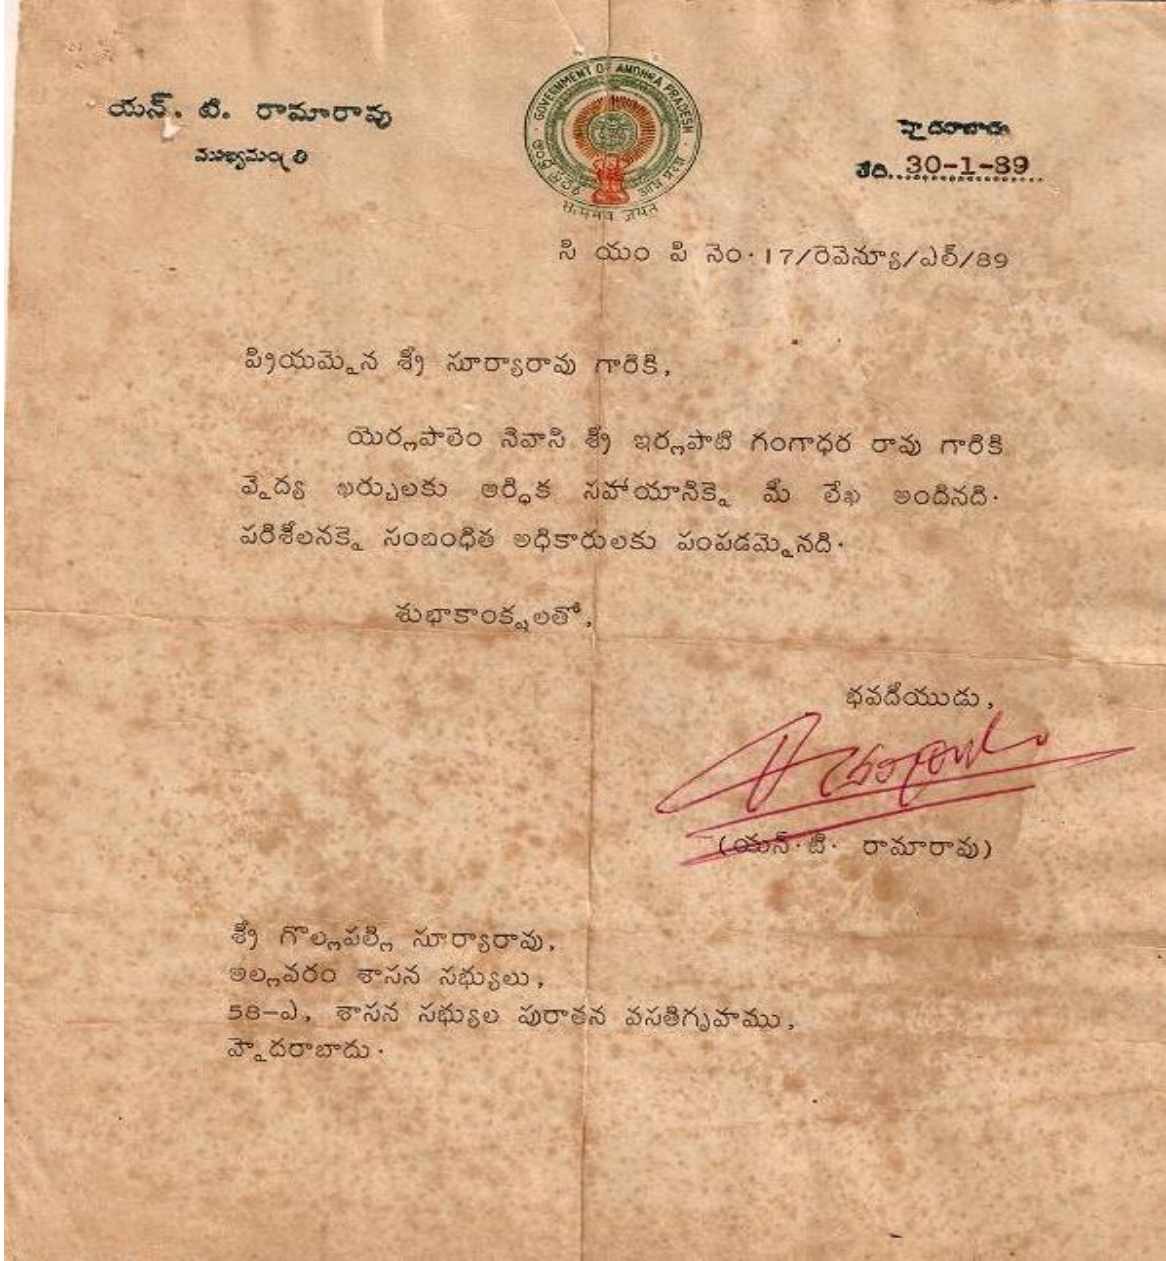 యన్. టి. రామారావు
ముఖ్యమంత్రి
GOVERNMENT OF ANDHRA PRADESH
ఆంధ్ర ప్రదేశ్
आन्ध्र प्रदेश
सत्यमेव जयते
హైదరాబాదు
తేది. 30-1-89
సి యం పి నెం. 17/రెవెన్యూ/ఎల్/89
ప్రియమైన శ్రీ సూర్యారావు గారికి,
యెర్లపాలెం నివాసి శ్రీ ఇర్లపాటి గంగాధర రావు గారికి
వైద్య ఖర్చులకు ఆర్ధిక సహాయానికై మీ లేఖ అందినది.
పరిశీలనకై సంబంధిత అధికారులకు పంపడమైనది.
శుభాకాంక్షలతో,
భవదీయుడు,
(యన్. టి. రామారావు)
శ్రీ గొల్లపల్లి సూర్యారావు,
అల్లవరం శాసన సభ్యులు,
58-ఎ, శాసన సభ్యుల పురాతన వసతిగృహము,
హైదరాబాదు.